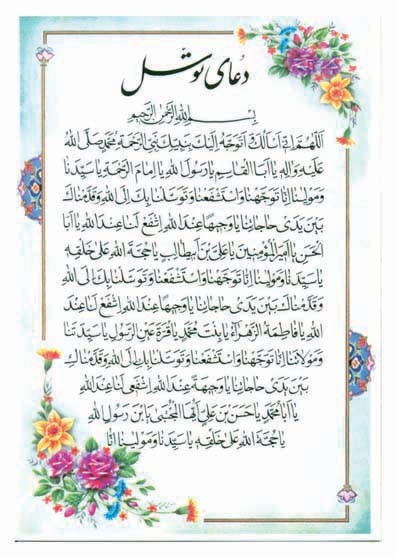 دعای توسل
بسم الله الرحمن الرحیم
اَللّهُمَّ اِنّی اَسْاَلُکَ وَ اَتَوَجَّهُ اِلَیْکَ بِنَبِیِّکَ نَبِیِّ الرَّحْمَةِ مُحَمَّدٍ صَلَّی اللهُ
عَلَیْهِ وَ الِهِ یا اَبَا الْقاسِمِ یا رَسُولَ اللهِ یا اِمامَ الرَّحْمَةِ یا سَیِّدَنا
وَ مَوْلینا اِنّا تَوَجَّهْنا وَ اسْتَشْفَعْنا وَ تَوَسَّلْنا بِکَ اِلَی اللهِ وَ قَدَّمْناکَ
بَیْنَ یَدَیْ حاجاتِنا یا وَجیهاً عِنْدَ اللهِ اِشْفَعْ لَنا عِنْدَ اللهِ یا اَبَا
الْحَسَنِ یا اَمیرَ الْمُؤْمِنینَ یا عَلِیَّ بْنَ اَبیطالِبٍ یا حُجَّةَ اللهِ عَلی خَلْقِهِ
یا سَیِّدَنا وَ مَوْلینا اِنّا تَوَجَّهْنا وَ اسْتَشْفَعْنا وَ تَوَسَّلْنا بِکَ اِلَی اللهِ
وَ قَدَّمْناکَ بَیْنَ یَدَیْ حاجاتِنا یا وَجیهاً عِنْدَ اللهِ اِشْفَعْ لَنا عِنْدَ
اللهِ یا فاطِمَةَ الزَّهْراَّءُ یا بِنْتَ مُحَمَّدٍ یا قُرَّةَ عَیْنِ الرَّسُولِ یا سَیِّدَتَنا
وَ مَوْلاتَنا اِنّا تَوَجَّهْنا وَ اسْتَشْفَعْنا وَ تَوَسَّلْنا بِکِ اِلَی اللهِ وَ قَدَّمْناکِ
بَیْنَ یَدَیْ حاجاتِنا یا وَجیهَةً عِنْدَ اللهِ اِشْفَعی لَنا عِنْدَ اللهِ
یا اَبا مُحَمَّدٍ یا حَسَنَ بْنَ عَلِیٍّ اَیُّهَا الْمُجْتَبی یَا بْنَ رَسُولِ اللهِ
یا حُجَّةَ اللهِ عَلی خَلْقِهِ یا سَیِّدَنا وَ مَوْلینا اِنّا